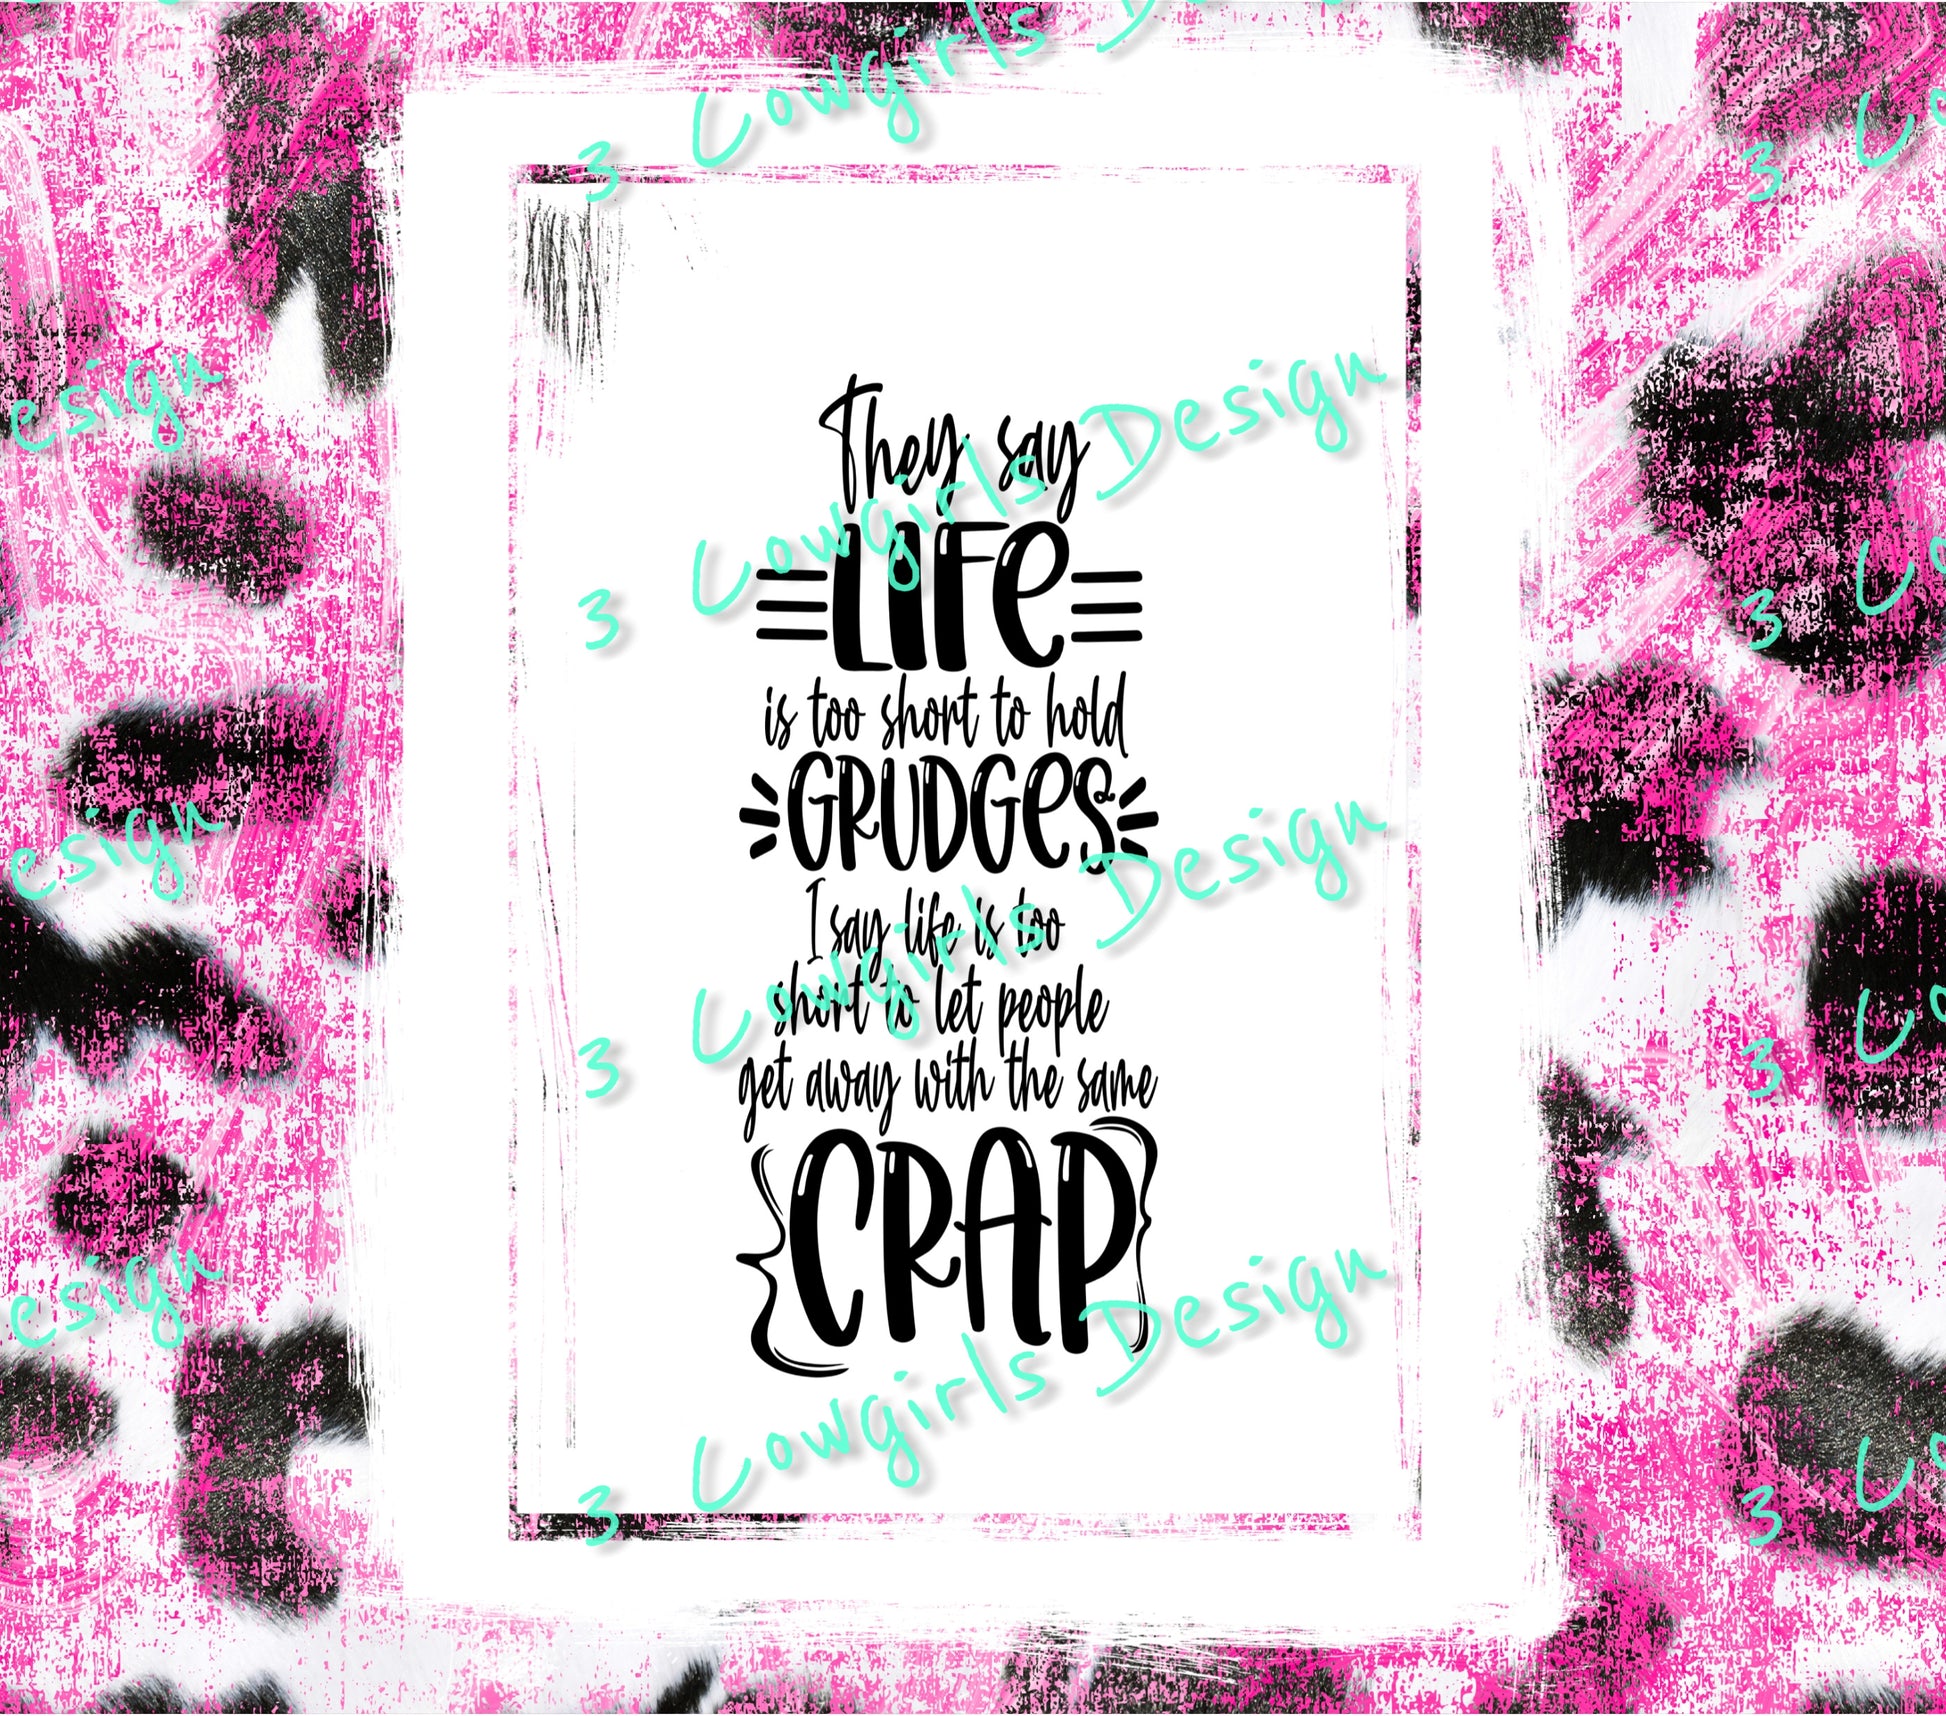 3 Cowgirls D
3 Co
They say
esign
3 Cowgirls Design
3 Co
LIFE
is too short to hold
GRUDGES
esign
3 Cowgirls Design
3 Co
I say life is too
short to let people
get away with the same
CRAP
esign
3 Cowgirls Design
3 Co